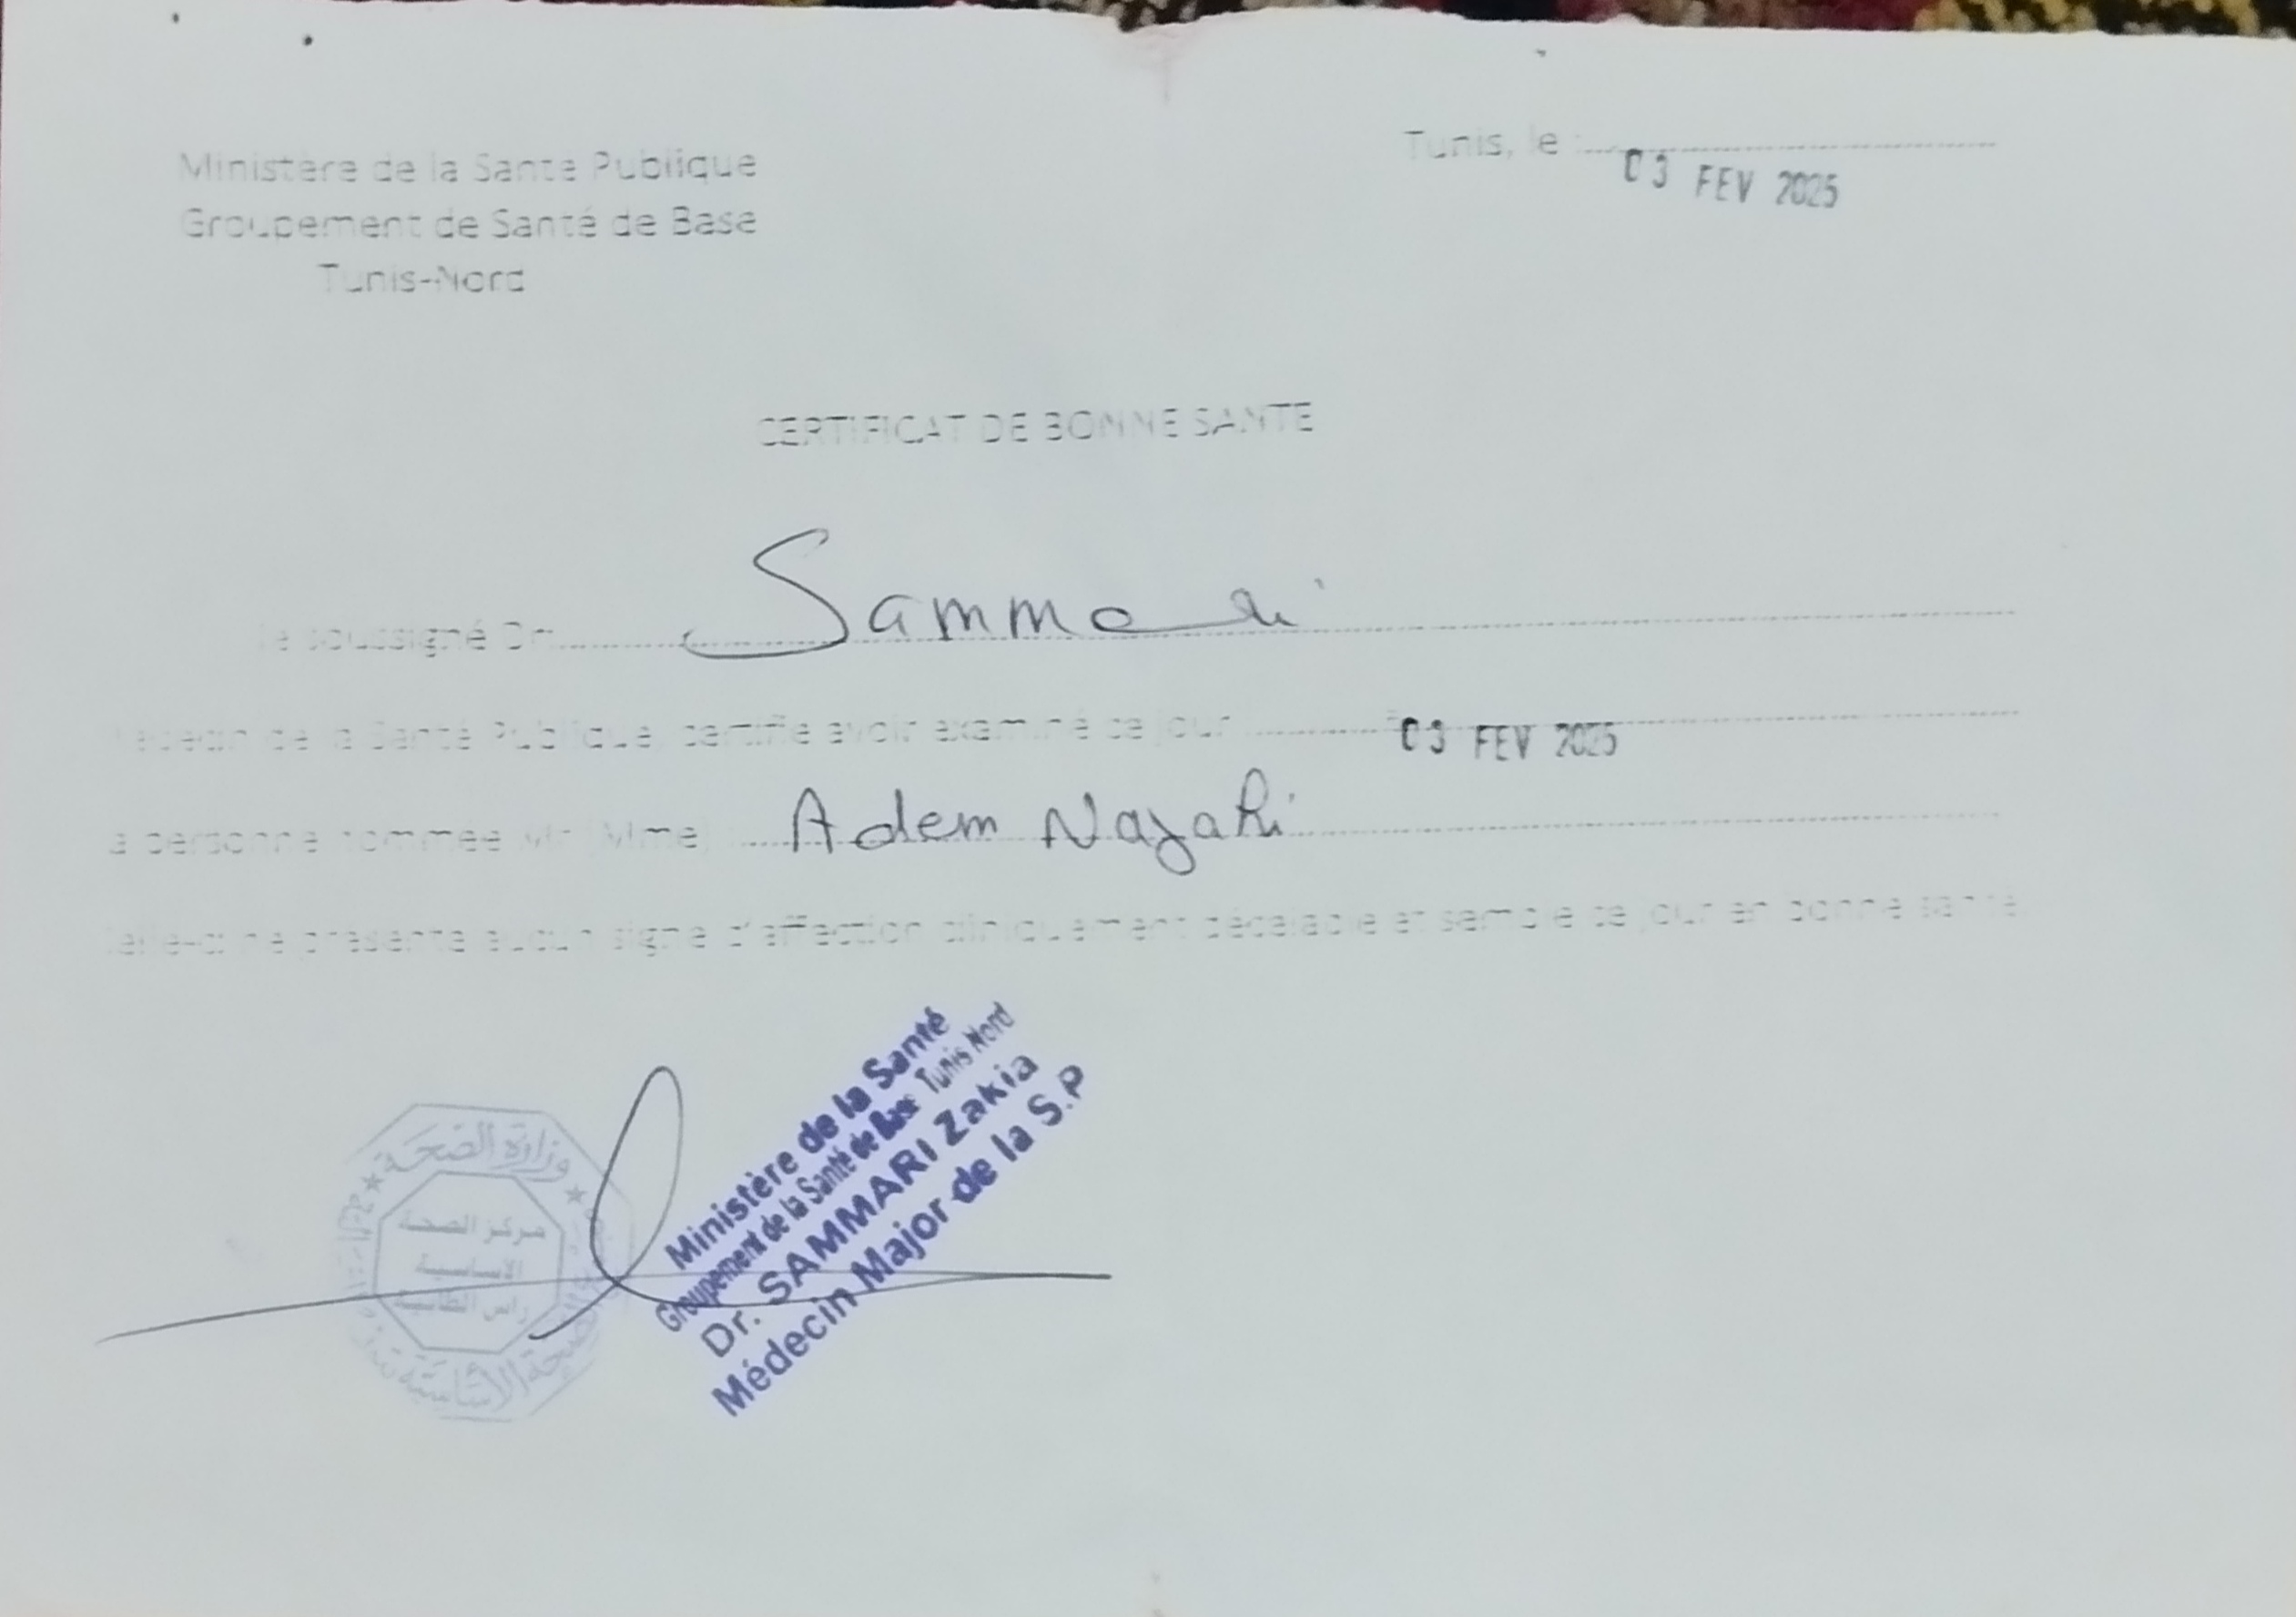 Ministère de la Sante Publique
Groupement de Santé de Base
Tunis-Nord
Tunis, le : 03 FEV 2025
CERTIFICAT DE BONNE SANTE
Je soussigné Dr Sammari
Médecin de la Santé Publique, certifie avoir examiné ce jour 03 FEV 2025
la personne nommée Mr (Mme) Adem
Celle-ci ne présente aucun signe d'affection cliniquement décelable et semble ce jour en bonne santé
Ministère de la Santé
Groupement de la Santé de Base Tunis Nord
Dr. SAMMARI Zakia
Médecin Major de la S.P
وزارة الصحة
مركز الصحة
الأساسية
راس الطابية